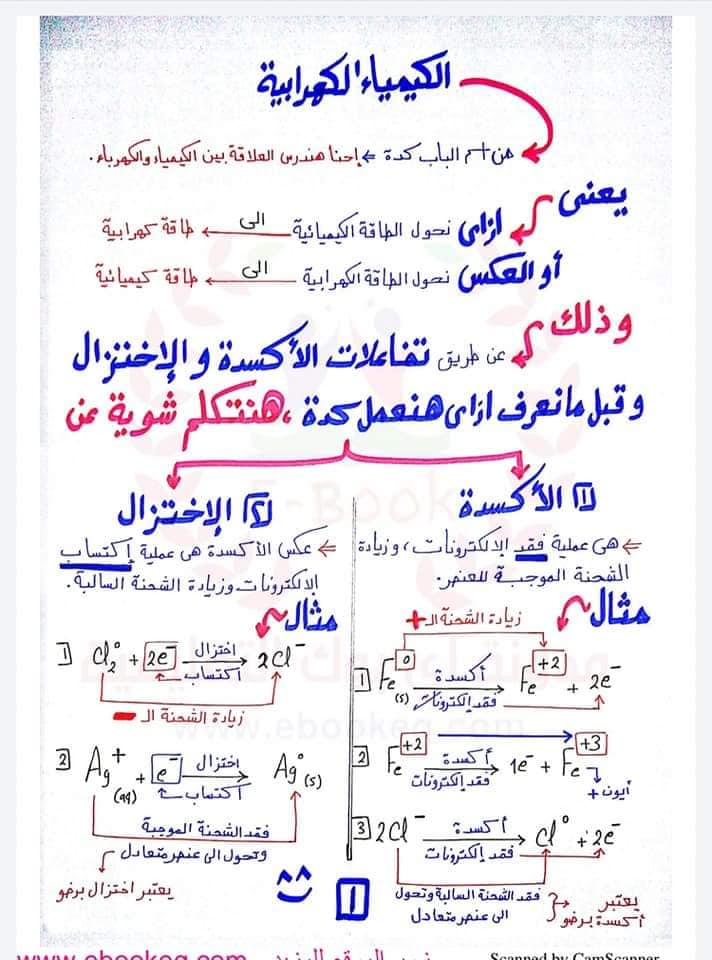 الكيمياء الكهرابية
من اسم الباب كدة ⇐ إحنا هندرس العلاقة بين الكيمياء والكهرباء.
يعنى
ازاى نحول الطاقة الكيميائية الى طاقة كهرابية
أو العكس نحول الطاقة الكهرابية الى طاقة كيميائية
وذلك
عن طريق تفاعلات الأكسدة و الإختزال
وقبل مانعرف ازاى هنعمل كدة ، هنتكلم شوية عن
١ الأكسدة
⇐ هى عملية فقد الإلكترونات ، وزيادة
الشحنة الموجبة للعنصر.
مثال
زيادة الشحنة الـ +
1 Fe⁰(s) أكسدة → Fe⁺² + 2e⁻
فقد إلكترونات
2 Fe⁺² أكسدة → 1e⁻ + Fe⁺³
فقد إلكترونات
أيون +
3 2Cl⁻ أكسدة → Cl⁰ + 2e⁻
فقد إلكترونات
فقد الشحنة السالبة وتحول
الى عنصر متعادل
يعتبر
أكسدة برضو
٢ الإختزال
⇐ عكس الأكسدة هى عملية إكتساب
الإلكترونات وزيادة الشحنة السالبة.
مثال
1 Cl₂⁰ + 2e⁻ اختزال → 2Cl⁻
اكتساب
زيادة الشحنة الـ -
2 Ag⁺(aq) + e⁻ اختزال → Ag⁰(s)
اكتساب
فقد الشحنة الموجبة
وتحول الى عنصر متعادل
يعتبر اختزال برضو
١
E-Book
www.ebookeg.com
www.ebookeg.com
Scanned by CamScanner